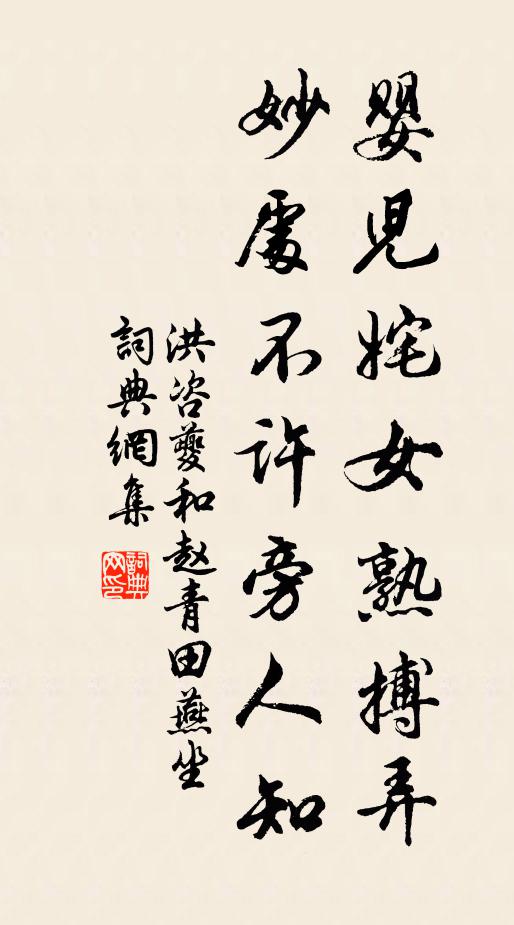 嬰児姹女熟搏弄
妙處不许旁人知
洪咨夔和赵青田燕坐
詞典網集
詞典网印